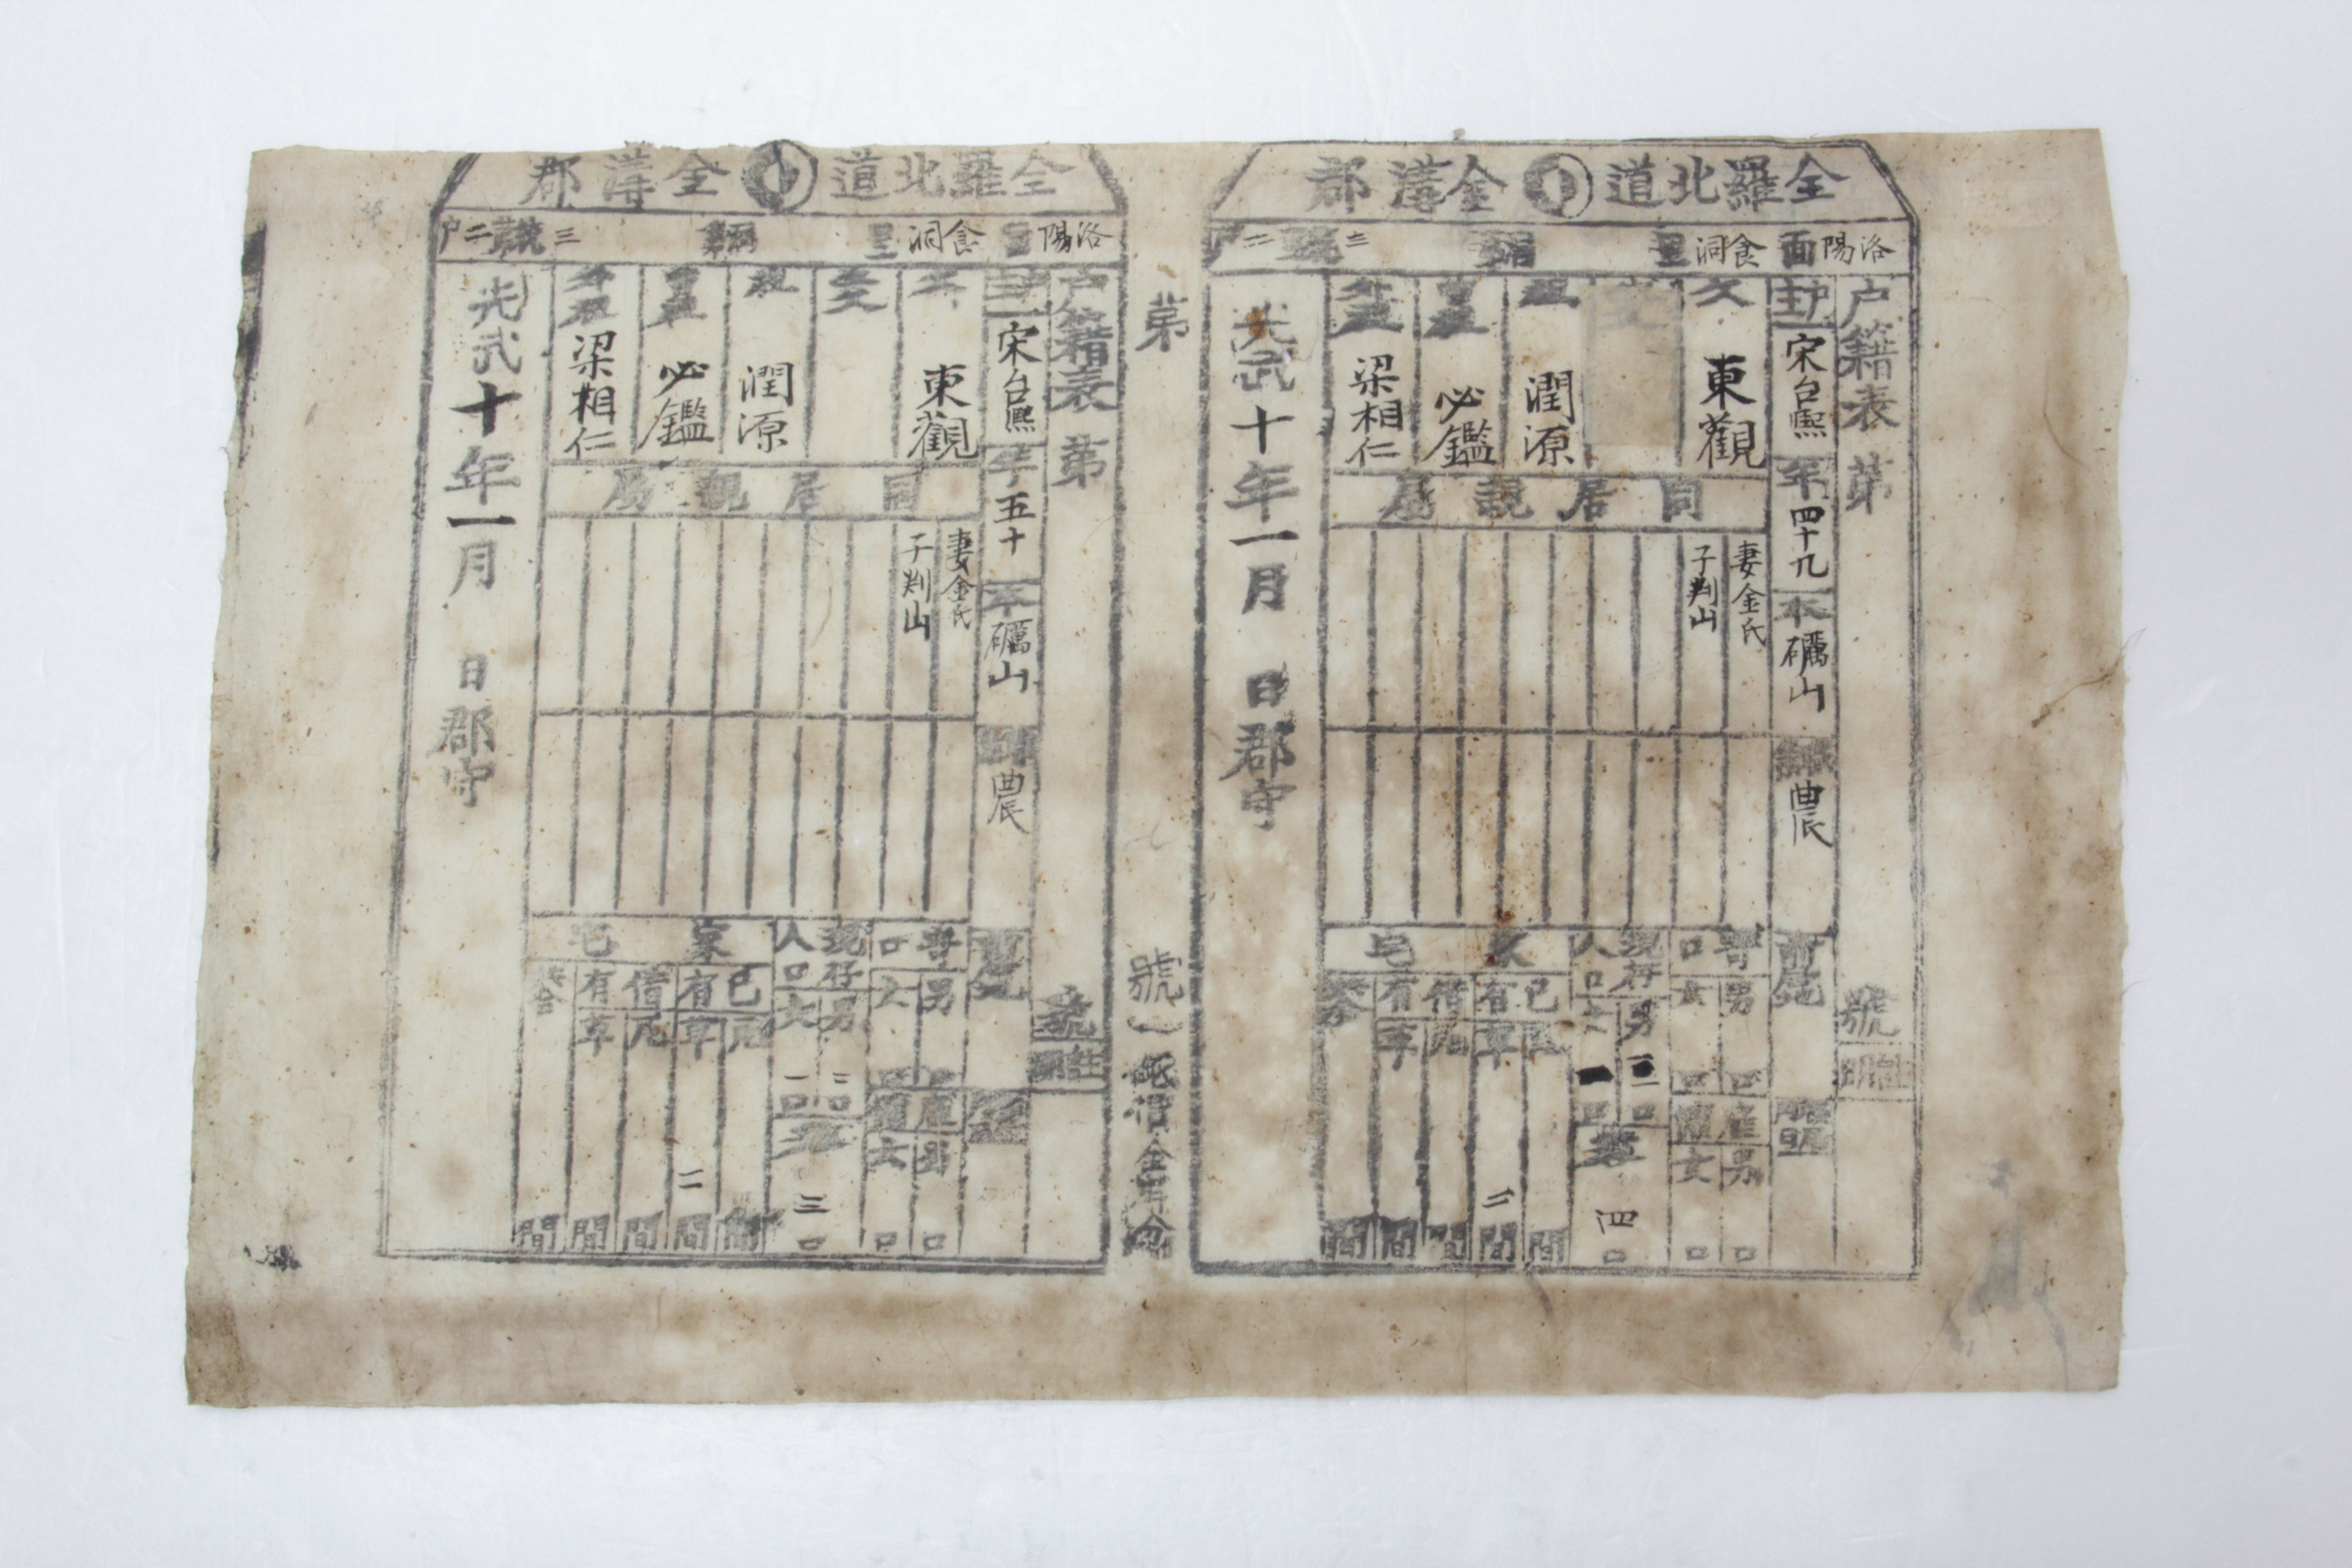 全羅北道 金溝郡
洛陽面 食洞里 統 三號 二
戶籍表 第 號
戶主 宋台熙 年四十九 本礪山 職農
父 東觀
祖 潤源
曾祖 必鑑
外祖 梁相仁
同居親屬
妻金氏
子判山
寄口 男 口 女 口
現存人口 男 女 一口
四口
家宅
己有 草 二間
借有 草 間
光武十年一月 日 郡守
第 號
全羅北道 金溝郡
洛陽 食洞里 統 三號 二戶
戶籍表 第 號
戶主 宋台熙 年五十 本礪山 職農
父 東觀
祖 潤源
曾祖 必鑑
外祖 梁相仁
同居親屬
妻金氏
子判山
寄口 男 女
現存人口 男 二口 女 一口
三口
家宅
己有 瓦 間 草 二間
借有 瓦 間 草 間
光武十年一月 日 郡守